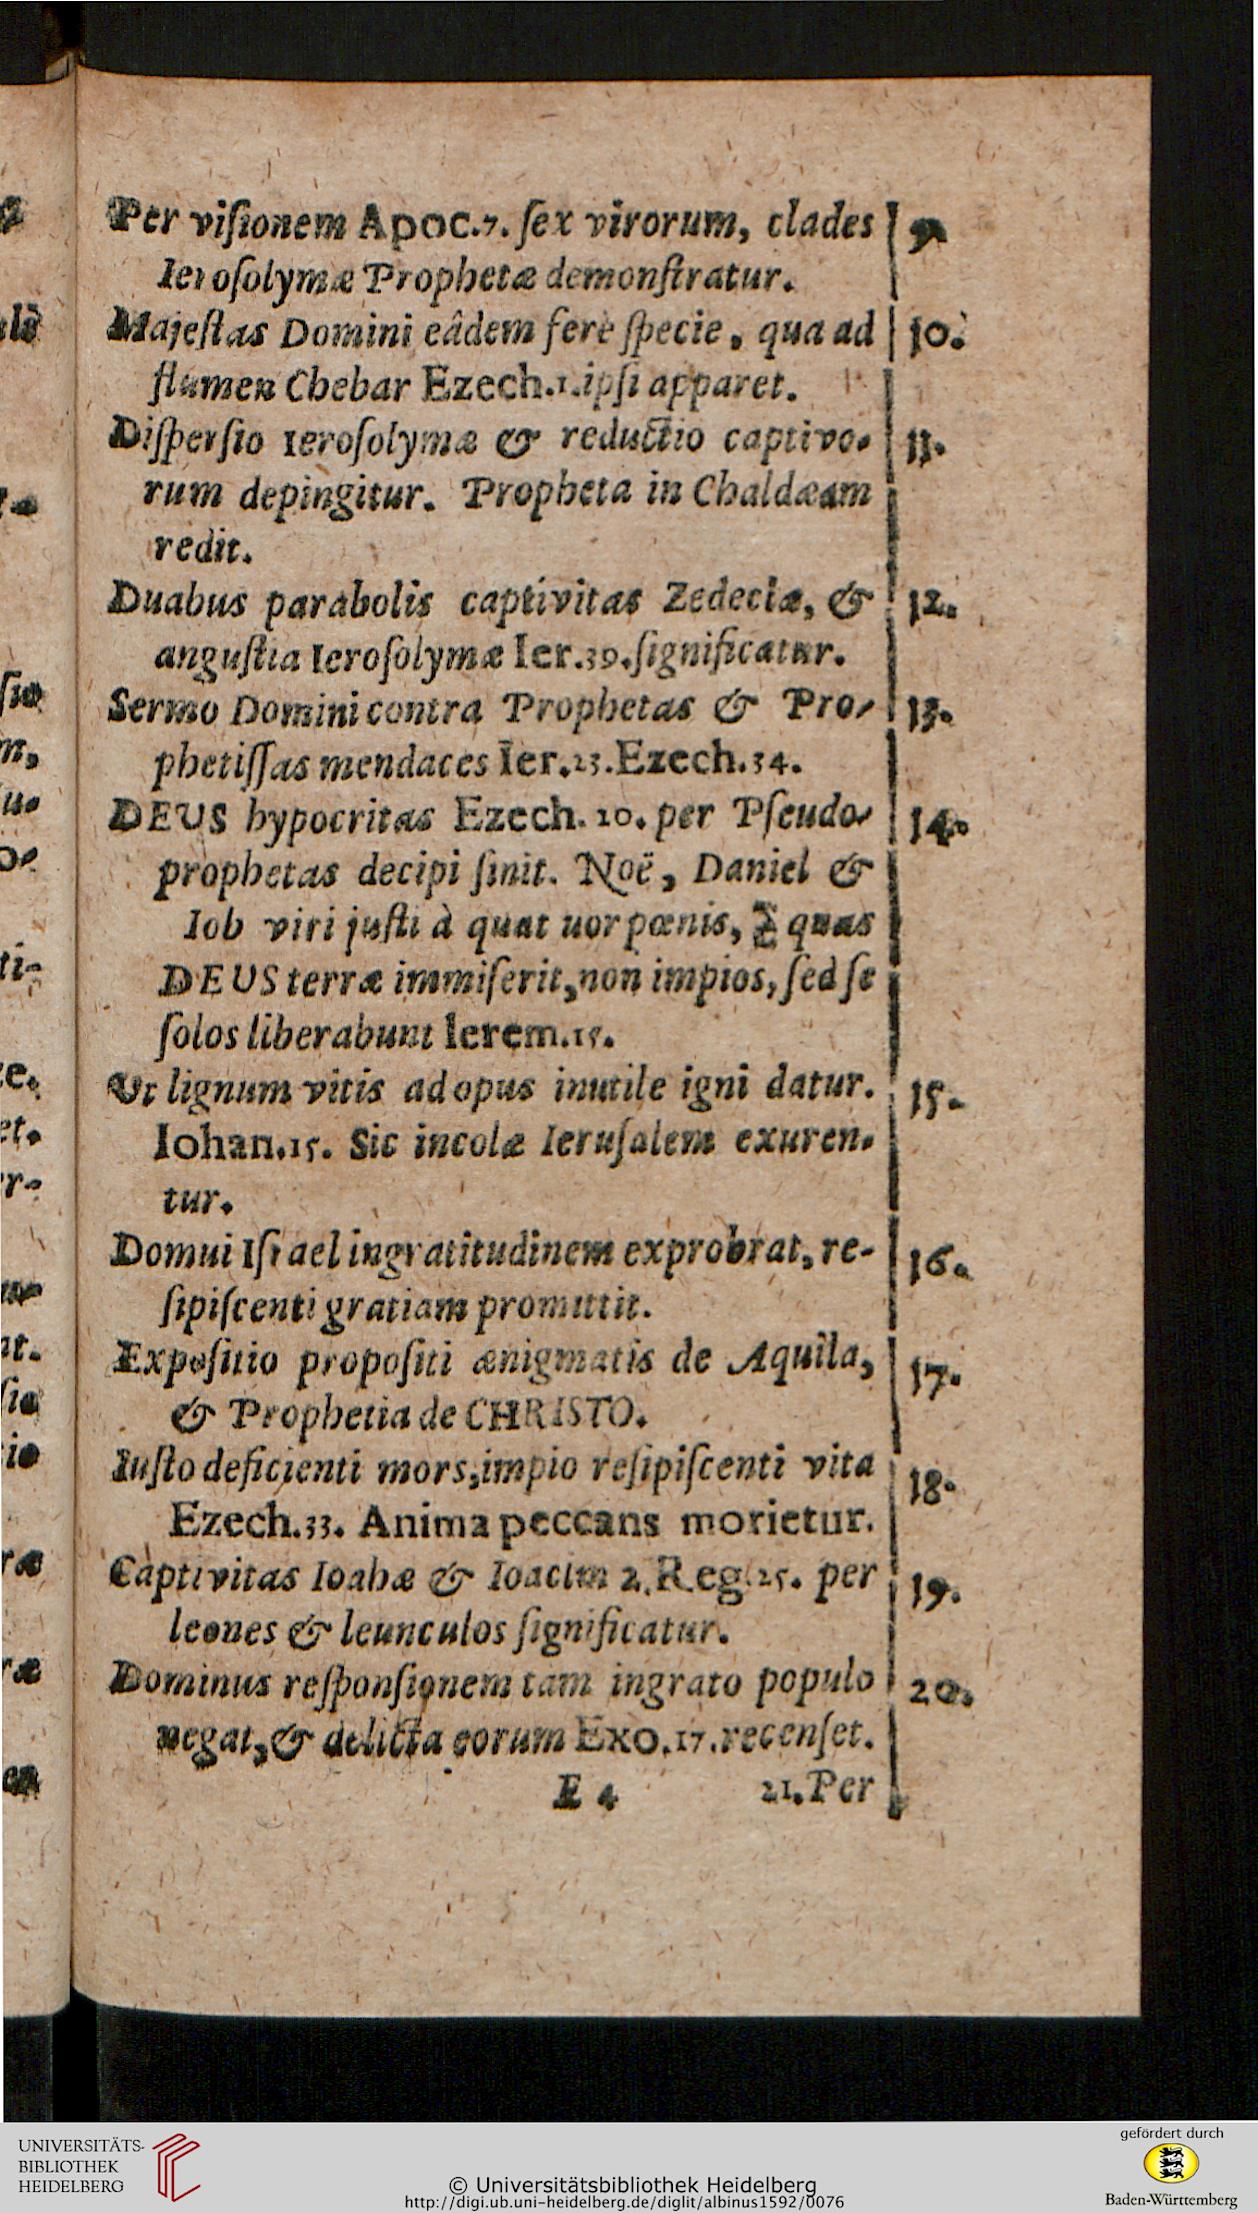 Per viſionem Apoc.7. ſex virorum, clades 9.
Ieroſolymæ Prophetæ demonſtratur.
Majeſtas Domini eâdem ferè ſpecie, qua ad 10.
flumen Chebar Ezech.1.ipſi apparet.
Diſperſio Ieroſolymæ & reductio captivo- 11.
rum depingitur. Propheta in Chaldæam
redit.
Duabus parabolis captivitas Zedeciæ, & 12.
anguſtia Ieroſolymæ Ier.39.ſignificatur.
Sermo Domini contra Prophetas & Pro- 13.
phetiſſas mendaces Ier.23.Ezech.34.
DEUS hypocritas Ezech.20.per Pſeudo- 14.
prophetas decipi ſinit. Noë, Daniel &
Iob viri juſti à quat uor pœnis, quas
DEUS terræ immiſerit,non impios,ſed ſe
ſolos liberabunt Ierem.15.
Ut lignum vitis ad opus inutile igni datur. 15.
Iohan.15. Sic incolæ Ieruſalem exuren-
tur.
Domui Iſrael ingratitudinem exprobrat, re- 16.
ſipiſcenti gratiam promittit.
Expoſitio propoſiti ænigmatis de Aquila, 17.
& Prophetia de CHRISTO.
Iuſto deficienti mors,impio reſipiſcenti vita 18.
Ezech.33. Anima peccans morietur.
Captivitas Ioahæ & Ioacim 2.Reg.25. per 19.
leones & leunculos ſignificatur.
Dominus reſponſionem tam ingrato populo 20.
negat,& delicta eorum Exo.17.recenſet.
E 4 21.Per
UNIVERSITÄTS-
BIBLIOTHEK
HEIDELBERG
© Universitätsbibliothek Heidelberg
http://digi.ub.uni-heidelberg.de/diglit/albinus1592/0076
gefördert durch
Baden-Württemberg